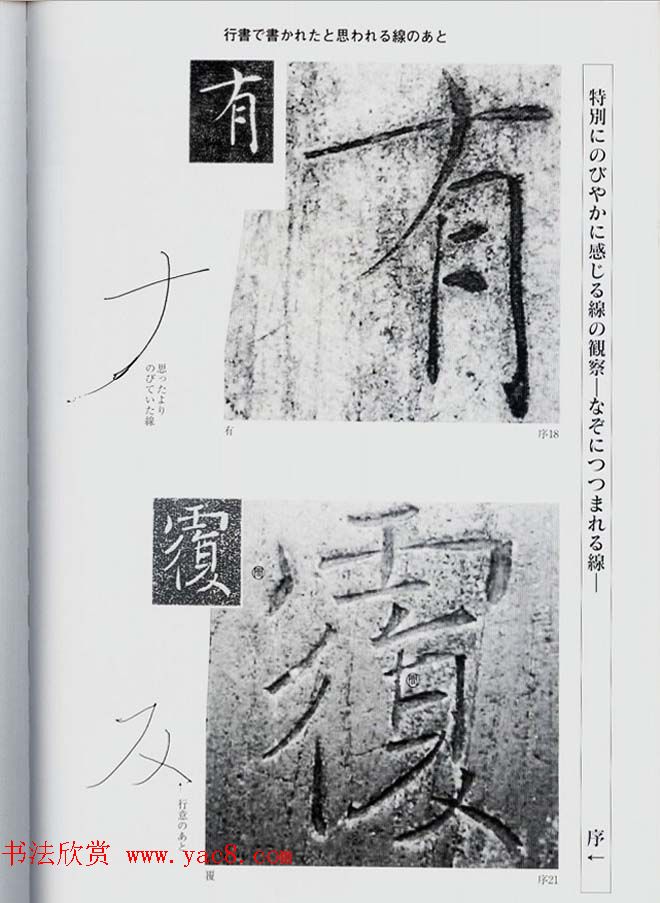 行書で書かれたと思われる線のあと
特別にのびやかに感じる線の観察―なぞにつつまれる線―
序←
有
有
思ったより
のびていた線
有
序18
覆
覆
行意のあと
覆
序21
书法欣赏 www.yac8.com